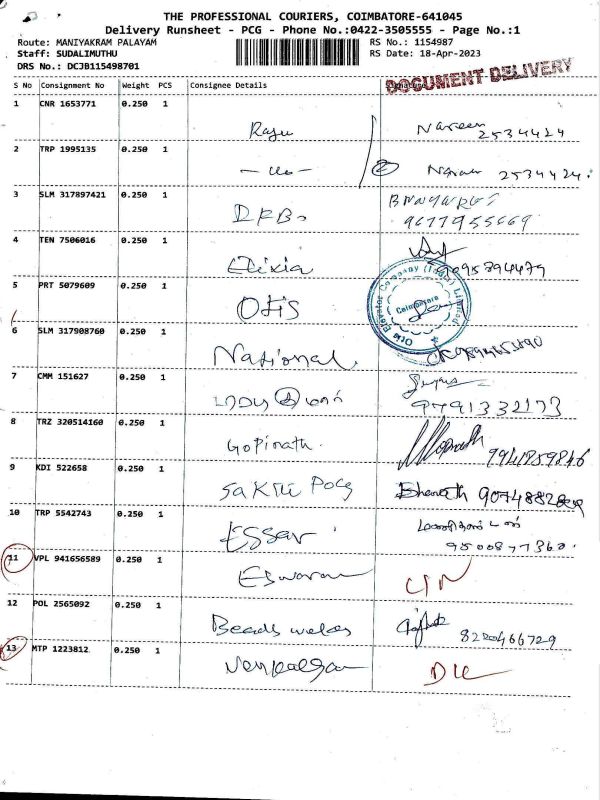 THE PROFESSIONAL COURIERS, COIMBATORE-641045
Delivery Runsheet - PCG - Phone No.:0422-3505555 - Page No.:1
Route: MANIYAKRAM PALAYAM RS No.: 1154987
Staff: SUDALIMUTHU RS Date: 18-Apr-2023
DRS No.: DCJB115498701
DOCUMENT DELIVERY
S No Consignment No Weight PCS Consignee Details
1 CNR 1653771 0.250 1
Raju Naveen
2534424
2 TRP 1995135 0.250 1
2 2534424.
3 SLM 317897421 0.250 1
9677955669
4 TEN 7506016 0.250 1
Elixia 9095394479
5 PRT 5079609 0.250 1
Otis Otis Elevator Company (India) Limited Coimbatore
6 SLM 317908760 0.250 1
National
7 CMM 151627 0.250 1
9791332173
8 TRZ 320514160 0.250 1
Gopinath. Gopinath 9941959846
9 KDI 522658 0.250 1
Sakthi Bharath
10 TRP 5542743 0.250 1
ESSar
9500877360.
11 VPL 941656589 0.250 1
Eswaran
12 POL 2565092 0.250 1
Beads 8220466729
13 MTP 1223812 0.250 1
DL